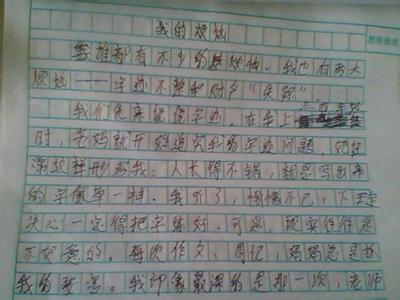 我的烦恼
谁都有不少的烦恼。我也有两大
烦恼——字迹不整和"失踪"
我们先来说说字迹。在我上
时，老妈就开始追究我的字迹问题，她
这样形容我：人长得不错，就是写出来
的字像草一样。我听了，惭愧不已，下定
决心一定得把字练好。可是，现实往往是
不如意的。每次作文，周记，妈妈总是
我的。我印象最深的是那一次，老师